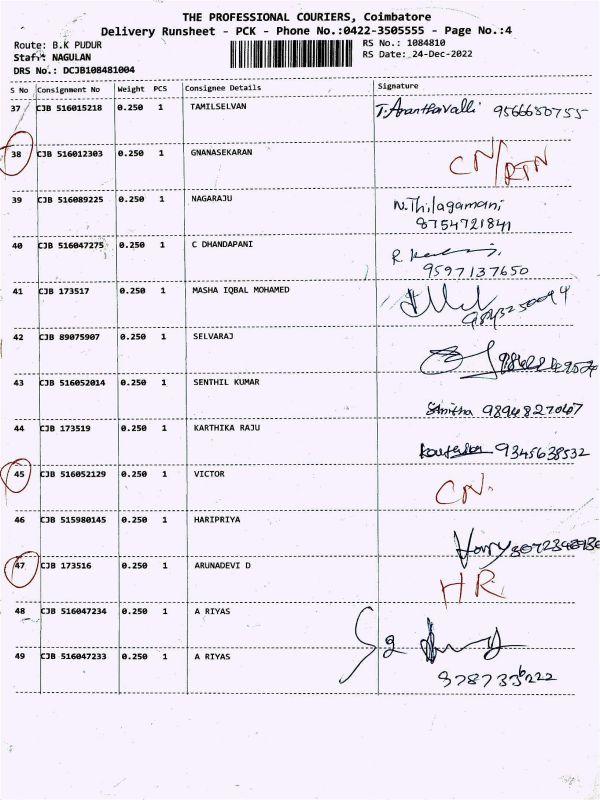 THE PROFESSIONAL COURIERS, Coimbatore
Delivery Runsheet - PCK - Phone No.:0422-3505555 - Page No.:4
Route: B.K PUDUR
RS No.: 1084810
Staff: NAGULAN
RS Date: 24-Dec-2022
DRS No.: DCJB108481004
S No Consignment No Weight PCS Consignee Details Signature
37 CJB 516015218 0.250 1 TAMILSELVAN T. Ananthavalli 9566650755
38 CJB 516012303 0.250 1 GNANASEKARAN CN/RTN
39 CJB 516089225 0.250 1 NAGARAJU N.Thilagamani
8754721841
40 CJB 516047275 0.250 1 C DHANDAPANI R
9597137650
41 CJB 173517 0.250 1 MASHA IQBAL MOHAMED
42 CJB 89075907 0.250 1 SELVARAJ
43 CJB 516052014 0.250 1 SENTHIL KUMAR
9894827047
44 CJB 173519 0.250 1 KARTHIKA RAJU
9345638532
45 CJB 516052129 0.250 1 VICTOR CN.
46 CJB 515980145 0.250 1 HARIPRIYA
47 CJB 173516 0.250 1 ARUNADEVI D HR
48 CJB 516047234 0.250 1 A RIYAS
49 CJB 516047233 0.250 1 A RIYAS